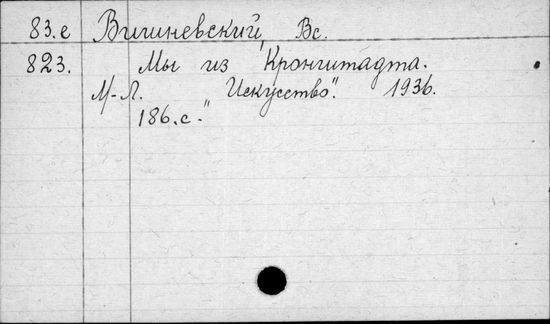 83.е Вишневский, Вс.
823. Мы из Кронштадта.
М-Л. "Искусство". 1936.
186.с.